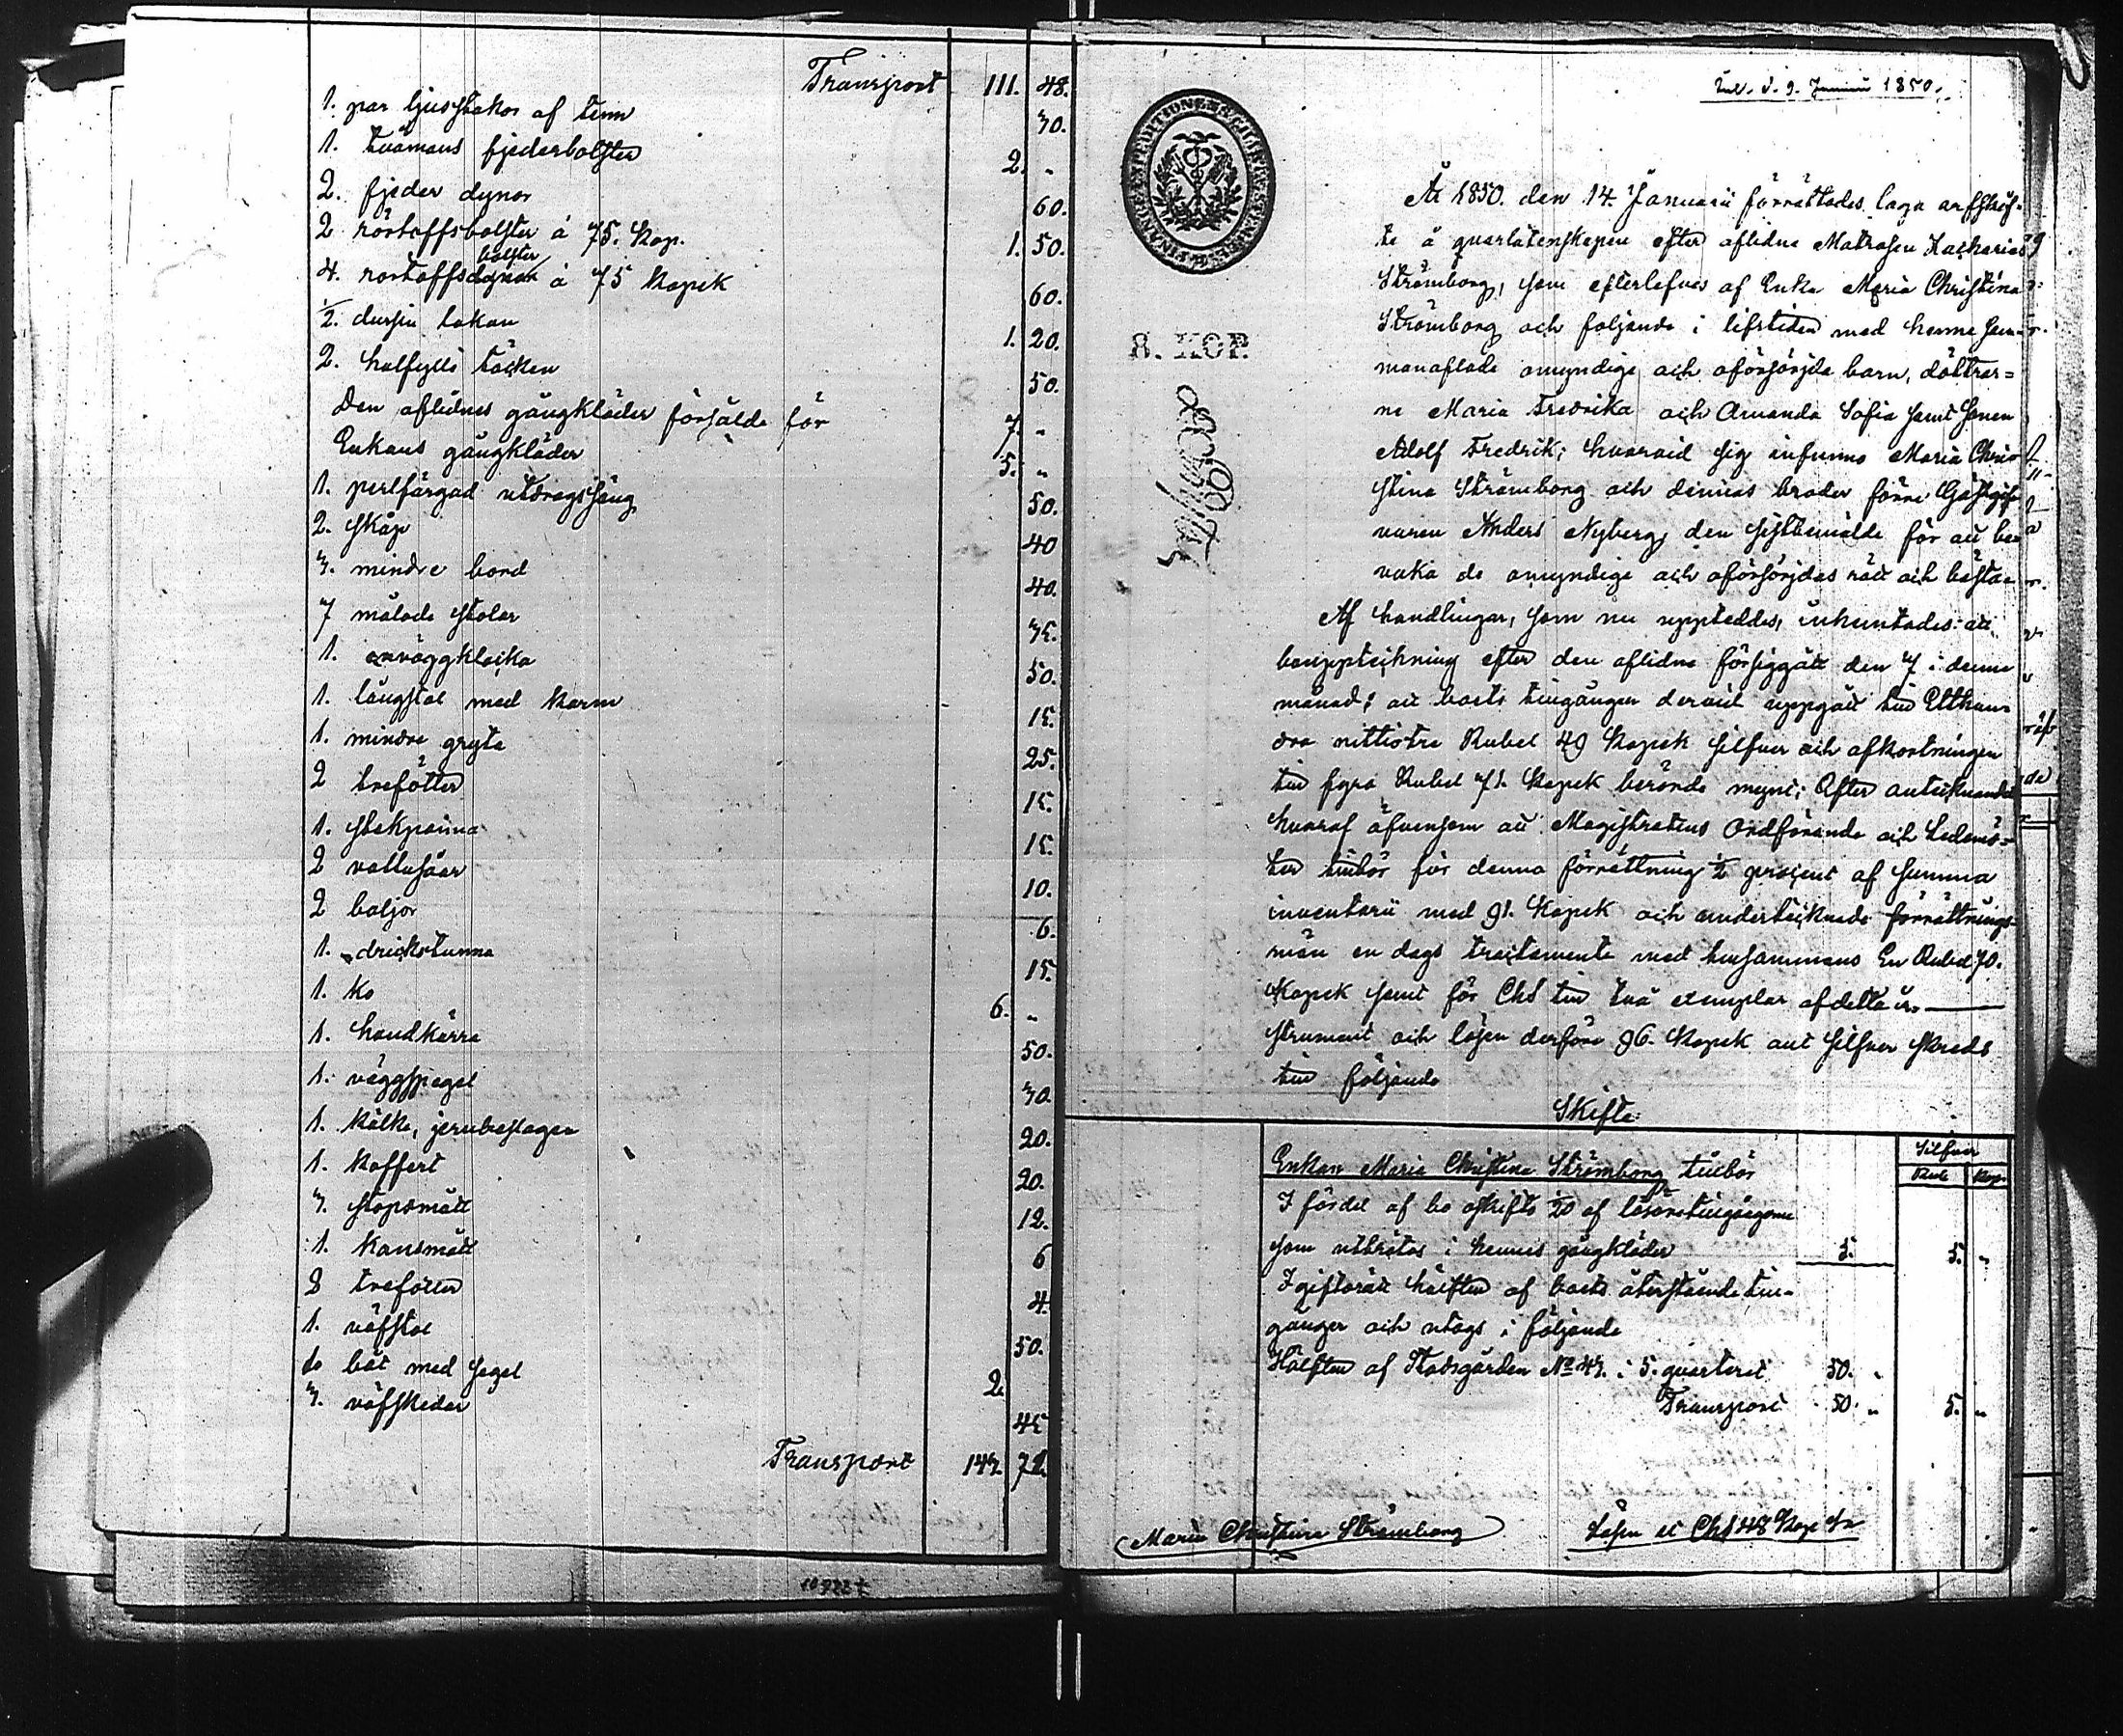 Transport 111. 48.
1. par ljusstakar af tenn 30.
1. tvåmans fjederbolster 2. "
2. fjeder dynor 60.
2 rörtoffsbolster á 75. Kop. 1. 50.
4. rörtoffsdynor bolster á 75 Kopek 60.
½. dussin lakan 1. 20.
2. halfylls täcken 50.
Den aflidnes gångkläder försålde för 7. "
Enkans gångkläder 5. "
1. perlfärgad utdragssäng 50.
2. skåp 40
3. mindre bord 40.
7 målade stolar 35.
1. väggklocka 50.
1. långstol med karm 15.
1. mindre gryta 25.
2 trefötter 15.
1. stekpanna 15.
2 vattusåar 10.
2 baljor 6.
1. drickstunna 15.
1. ko 6. "
1. handkärra 50.
1. väggspegel 30.
1. kälke, jernbeslagen 20.
1. koffert 20.
3. stopsmått 12.
1. kansmått 6
2 trefötter 4.
1. väfstol 50.
1. båt med segel 2.
3. väfskedar 45
Transport 143. 71.
d. 9. Junii 1850.
FINANCE EXPEDITIONENS
8. KOP.
År 1850. den 14. Januarii förrättades laga arfskif-
te å qvarlåtenskapen efter aflidne Matrosen Zacharias
Strömborg, som efterlefves af Enka Maria Christina
Strömborg och följande i lifstiden med henne sam-
manaflade omyndige och oförsörjda barn, döttrar=
ne Maria Fredrika och Amanda Sofia samt sonen
Adolf Fredrik; hvarvid sig infunno Maria Chri-
stina Strömborg och dennas broder förre Gästgif-
varen Anders Nyberg, den sistbemälde för att be-
vaka de omyndige och oförsörjdas rätt och bästa.
Af handlingar, som nu uppteddes, inhemtades: att
bouppteckning efter den aflidne försiggått den 7 i denne
månad; att boets tingångar dervid uppgått till Etthun-
dra nittiotre Rubel 49 Kopek silfver och afkortningen
till fyra Rubel 71. Kopek berörde mynt; Efter antecknande
hvaraf äfvensom att Magistratens Ordförande och Ledamö=
ter tillbör för denna förrättning ½ procent af Summa
inventarii med 91. Kopek och undertecknade förrättnings-
män en dags traktamente med tillsammans En Rubel 70.
Kopek samt för Chs till två exemplar af detta in-
strument och lösen derföre 96. Kopek allt silfver skreds
till följande
Skifte:
Silfver
Rub. Kop.
Enkan Maria Christina Strömborg tillbör
I fördel af bo oskifto 1/20 af lösöretingångarne
som uttages i hennes gångkläder 5. 5. "
I giftorätt hälften af boets återstående tin-
gångar och utogs i följande
Hälften af Stadsgården No 43. i 5. qvarteret 50. "
Transport 50. " 5. "
Maria Christina Strömborg
Lösen et Chs 48 Kop. Sr